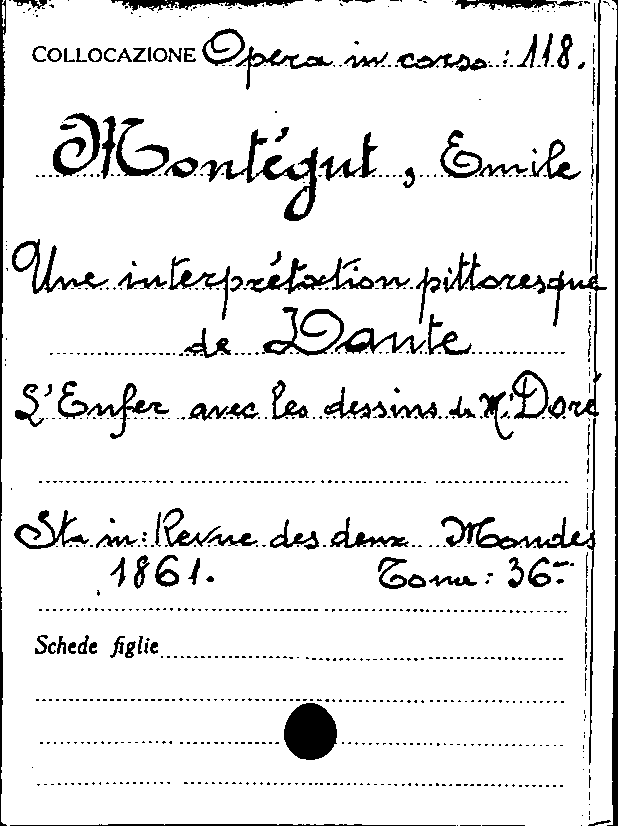 COLLOCAZIONE Opera in corso: 118.
Montégut, Emile
Une interprétation pittoresque
de Dante
L'Enfer avec les dessins de M. Doré
Sta in: Revue des deux Mondes
1861. Tome: 36.
Schede figlie